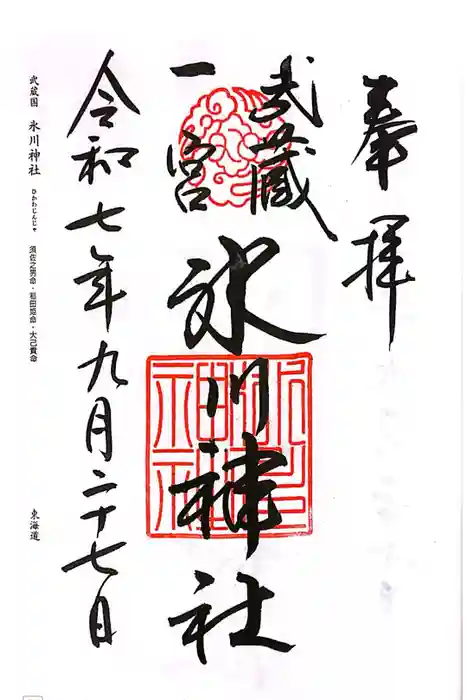 奉拝
武蔵
一宮
氷川神社
令和七年九月二十七日
武蔵国 氷川神社 ひかわじんじゃ 須佐之男命・稲田姫命・大己貴命
東海道